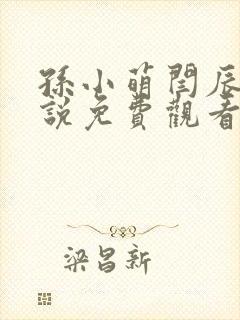 孫小萌閆辰
說免費觀看
梁昌新